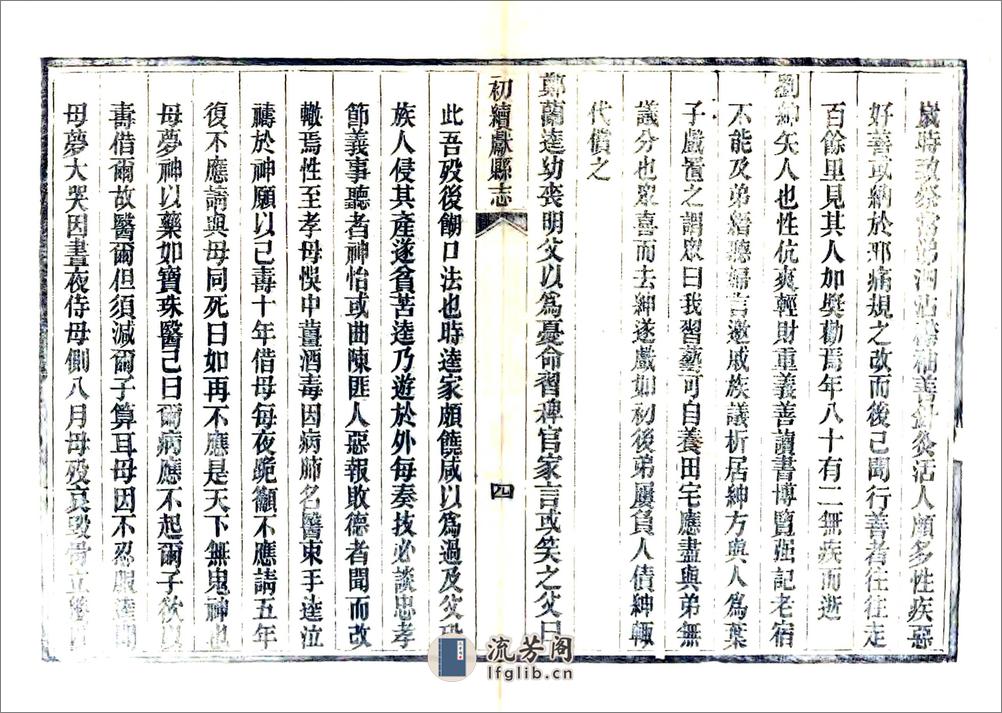 歲時致祭常涕泗沾襟袖善針灸活人頗多性疾惡
好善或納於邪痛規之改而後已聞行善者往往走
百餘里見其人加獎勸焉年八十有二無疾而逝
劉紳矢人也性伉爽輕財重義善讀書博覽强記老宿
不能及弟縉聽婦言邀戚族議析居紳方與人為葉
子戲詈之謂眾曰我習藝可自養田宅應盡與弟無
議分也眾喜而去紳遂戲如初後弟屢負人債紳輒
代償之
鄭蘭逵幼喪明父以為憂命習稗官家言或笑之父曰
初續獻縣志
四
此吾歿後餬口法也時逵家頗饒咸以為過及父歿
族人侵其產遂貧苦逵乃遊於外每奏技必談忠孝
節義事聽者神怡或曲陳匪人惡報敗德者聞而改
轍焉性至孝母悞中薑酒毒因病肺名醫束手逵泣
禱於神願以己壽十年借母每夜跪籲不應請五年
復不應請與母同死曰如再不應是天下無鬼神也
母夢神以藥如寶珠醫己曰爾病應不起爾子欲以
壽借爾故醫爾但須減爾子算耳母因不忍服逵聞
母夢大哭因晝夜侍母側八月母歿哀毀骨立
流芳阁
lfglib.cn